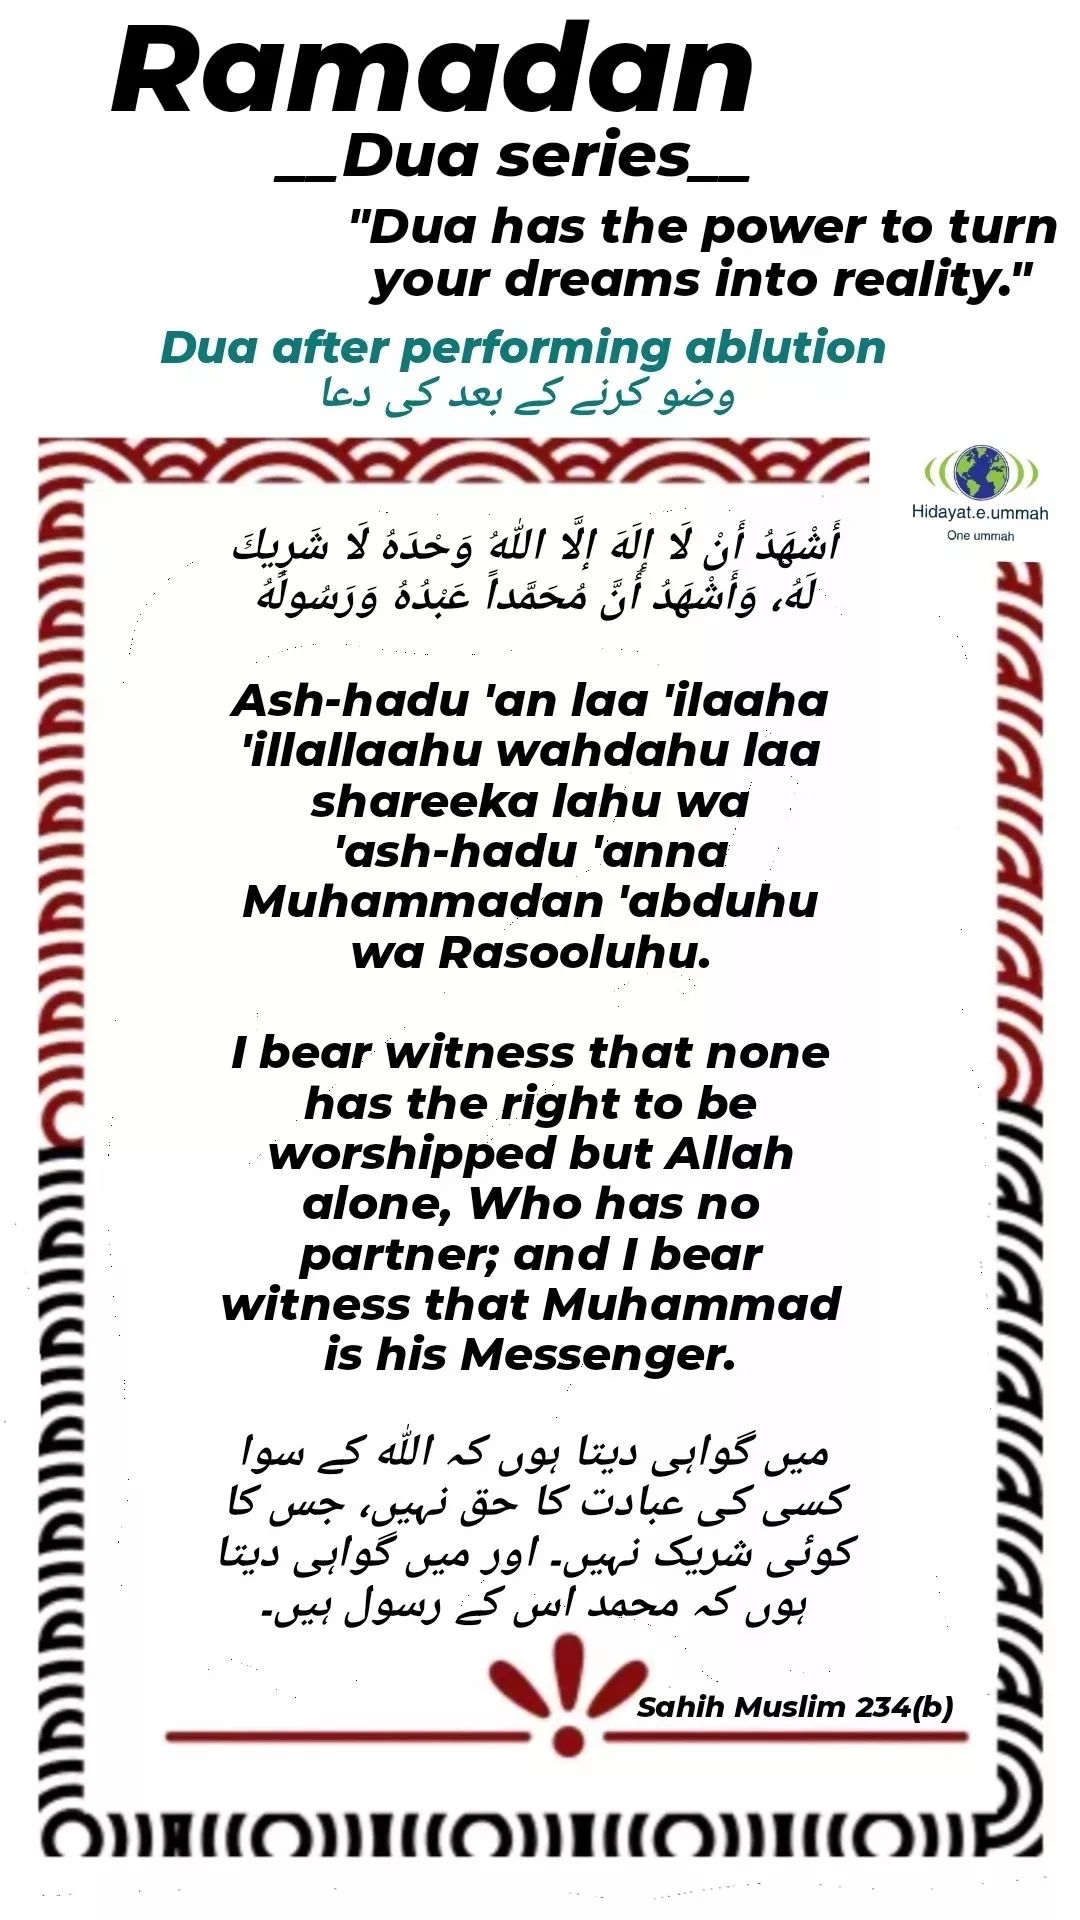 Ramadan
__Dua series__
"Dua has the power to turn
your dreams into reality."
Dua after performing ablution
وضو کرنے کے بعد کی دعا
Hidayat.e.ummah
One ummah
أَشْهَدُ أَنْ لَا إِلَهَ إلَّا اللَّهُ وَحْدَهُ لَا شَرِيكَ
لَهُ، وَأَشْهَدُ أَنَّ مُحَمَّداً عَبْدُهُ وَرَسُولُهُ
Ash-hadu 'an laa 'ilaaha
'illallaahu wahdahu laa
shareeka lahu wa
'ash-hadu 'anna
Muhammadan 'abduhu
wa Rasooluhu.
I bear witness that none
has the right to be
worshipped but Allah
alone, Who has no
partner; and I bear
witness that Muhammad
is his Messenger.
میں گواہی دیتا ہوں کہ اللہ کے سوا
کسی کی عبادت کا حق نہیں، جس کا
کوئی شریک نہیں۔ اور میں گواہی دیتا
ہوں کہ محمد اس کے رسول ہیں۔
Sahih Muslim 234(b)